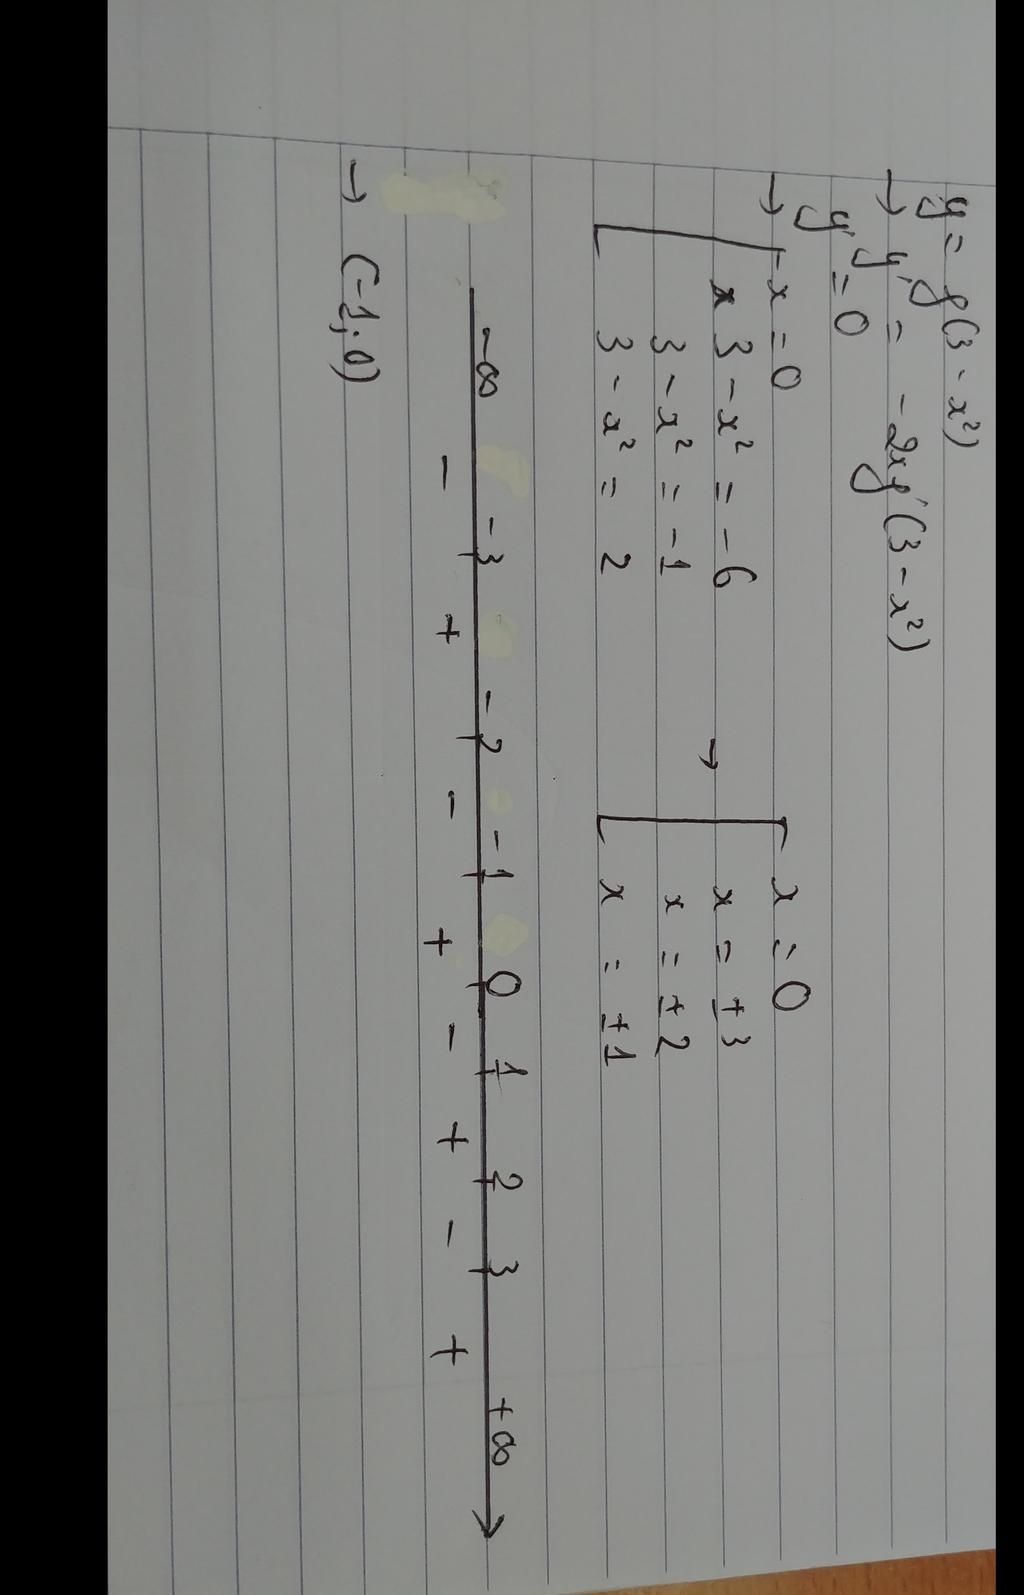 y = f(3 - x²)
→ y' = -2xf'(3 - x²)
y' = 0
→ [ -x = 0
x 3 - x² = -6
3 - x² = -1
3 - x² = 2
→ [ x = 0
x = ±3
x = ±2
x = ±1
-∞ -3 -2 -1 0 1 2 3 +∞
- + - + - + - +
→ (-1; 0)